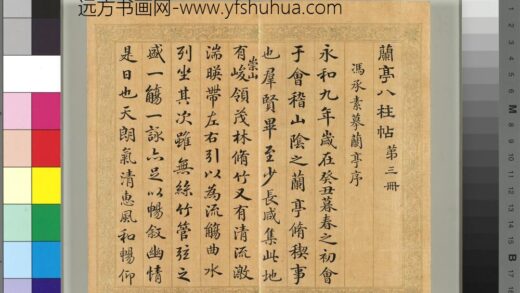 远方书画网-www.yfshuhua.com
蘭亭八柱帖 第三冊
馮承素摹蘭亭序
永和九年歲在癸丑暮春之初會
于會稽山陰之蘭亭脩稧事
也羣賢畢至少長咸集此地
有崇山峻領茂林脩竹又有清流激
湍暎帶左右引以為流觴曲水
列坐其次雖無絲竹管弦之
盛一觴一詠亦足以暢敘幽情
是日也天朗氣清惠風和暢仰
B